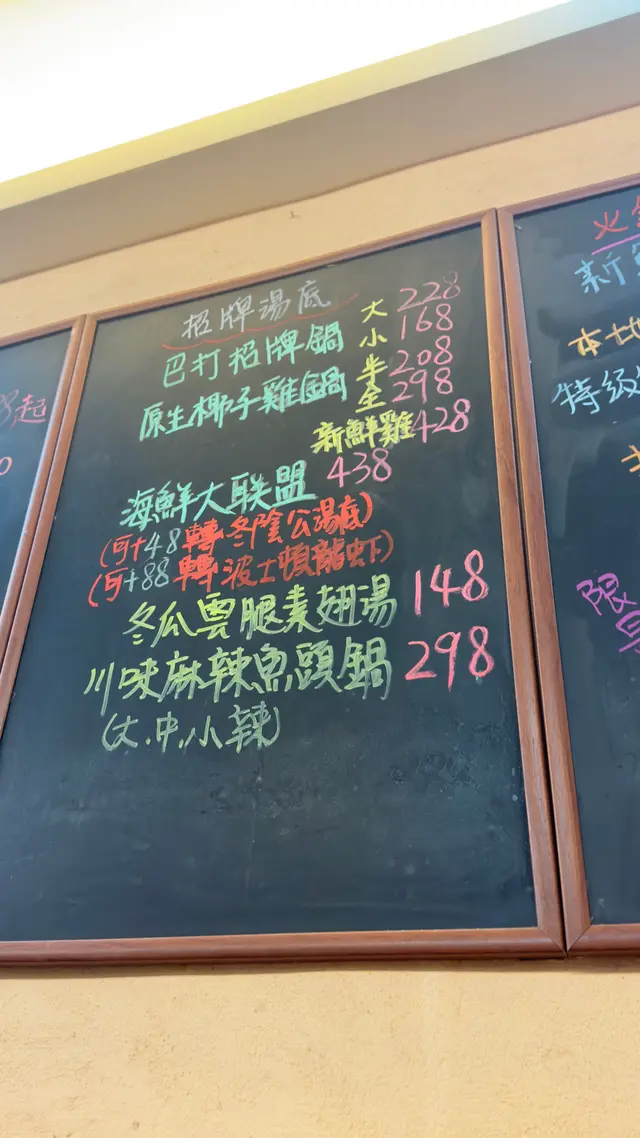 招牌湯底
巴打招牌鍋 大 228
小 168
原生椰子雞鍋 半 208
全 298
新鮮雞 428
海鮮大联盟 438
(可+48轉冬陰公湯底)
(可+88轉波士頓龍虾)
冬瓜雲腿素翅湯 148
川味麻辣魚頭鍋 298
(大.中.小辣)
起
0
火
新
本地
特級
限